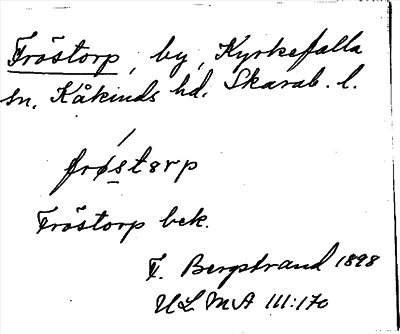 Fröstorp, by, Kyrkefalla
sn, Kåkinds hd. Skarab. l.
frøstɘrp
Fröstorp bek.
F. Bergstrand 1898
ULMA III:170